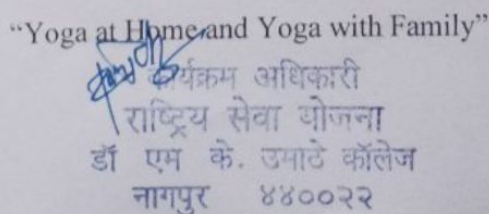 “Yoga at Home and Yoga with Family”
कार्यक्रम अधिकारी
राष्ट्रिय सेवा योजना
डॉ एम के. उमाठे कॉलेज
नागपुर ४४००२२